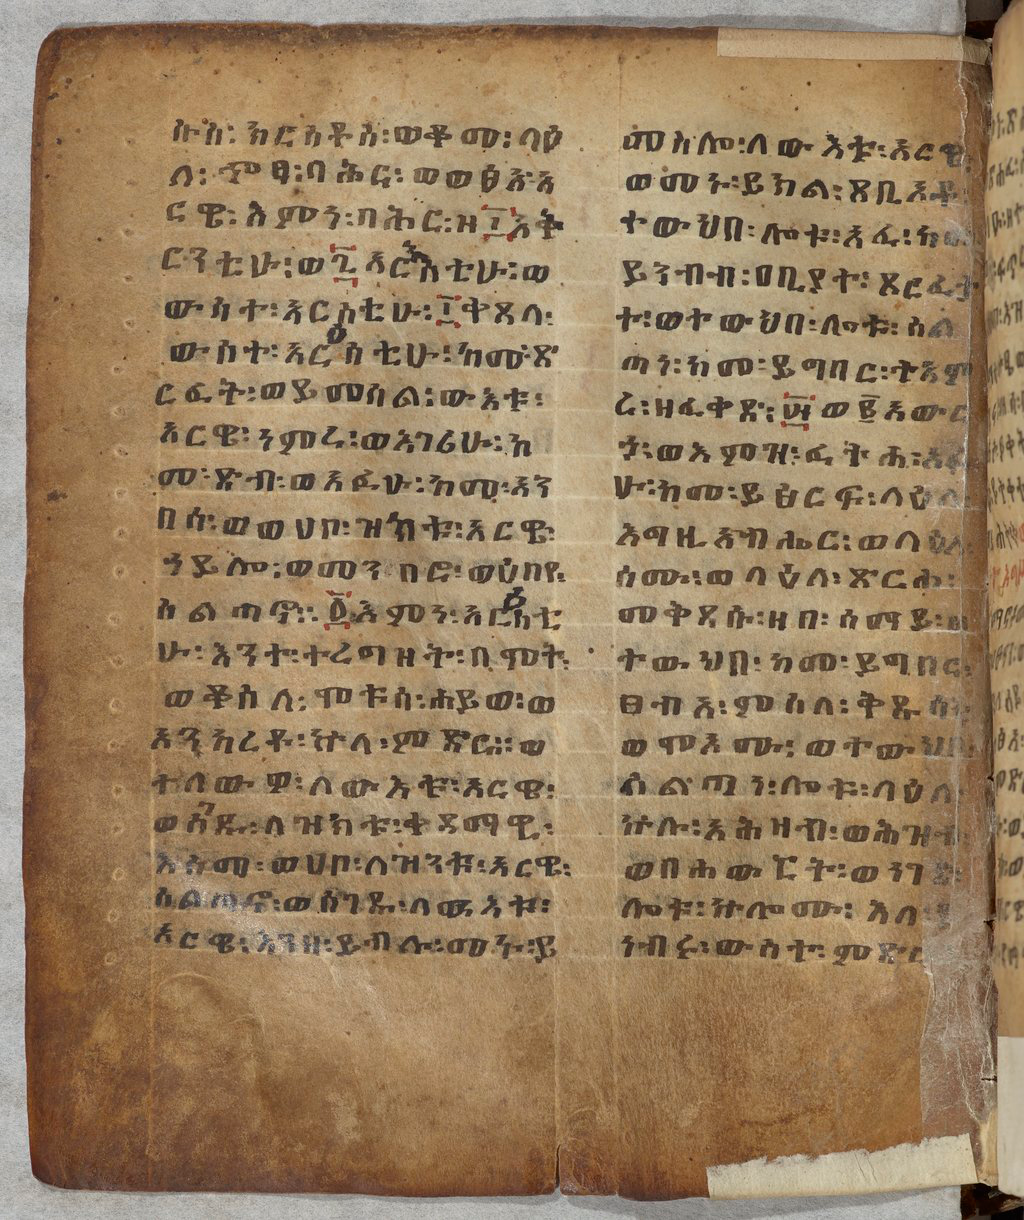 ሱስ፡ ክርስቶስ፡ወቆመ፡ላዕ
ለ፡ ኆፃ፡ባሕር፡ ወወፅአ፡አ
ርዌ፡ እምነ፡ባሕር፡ዘ፲አቅ
ርንቲሁ፡ወ፯አርእስቲሁ፡ወ
ውስተ፡አርስቲሁ፡፲ቀጸላ፡
ውስተ፡አርዕስቲሁ፡ከመ፡ጽ
ርፈት፡ወይመስል፡ውእቱ፡
አርዌ፡ነምረ፡ወእገሪሁ፡ከ
መ፡ድብ፡ወአፉሁ፡ከመ፡አን
በሳ፡ወወሀቦ፡ዝክቱ፡አርዌ፡
ኃይሎ፡ወመንበሮ፡ወዕበየ፡
ስልጣኖ፡፩እምነ፡አርዕስቲ
ሁ፡እንተ፡ተረግዘት፡በሞት፡
ወቆስለ፡ሞቱሰ፡ሐይወ፡ወ
አንከረቶ፡ኵላ፡ምድር፡፡ወ
ተለውዎ፡ለውእቱ፡አርዌ፡
ወሰገዱ፡ለዝክቱ፡ቀዳማዊ፡
እስመ፡ወሀቦ፡ለዝንቱ፡አርዌ፡
ስልጣኖ፡ወሰገዱ፡ለውእቱ፡
አርዌ፡እንዘ፡ይብሉ፡መኑ፡ይ
መስሎ፡ለውእቱ፡አርዌ፡
ወመኑ፡ይክል፡ጸቢኦቶ
ተውህበ፡ሎቱ፡አፈ፡ከመ
ይንብብ፡ዐቢያተ፡ጽርፈ
ተ፡ወተውህበ፡ሎቱ፡ስል
ጣን፡ከመ፡ይግበር፡ተአም
ረ፡ዘፈቀደ፡፵ወ፪አውራ
ኃ፡ወእምዝ፡ፈትሐ፡አፉ
ሁ፡ከመ፡ይፅርፍ፡ላዕለ፡
እግዚአብሔር፡ወላዕለ
ስሙ፡ወላዕለ፡ጽርሐ፡
መቅደሱ፡ዘበ፡ሰማይ፡ወ
ተውህበ፡ከመ፡ይግበር፡
ፀብአ፡ምስለ፡ቅዱሳን፡
ወሞኦሙ፡ወተውህበ፡
ስልጣን፡ሎቱ፡ላዕለ
ኵሉ፡አሕዛብ፡ወሕዝብ
ወበሐውርት፡ወነገድ
ሎቱ፡ኵሎሙ፡ እለ፡
ነብሩ፡ውስተ፡ምድር